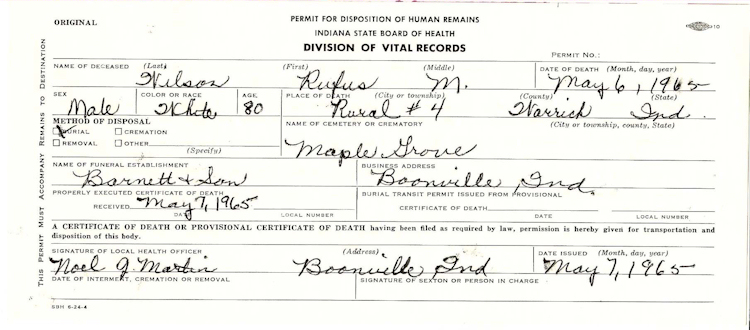 ORIGINAL
PERMIT FOR DISPOSITION OF HUMAN REMAINS
INDIANA STATE BOARD OF HEALTH
DIVISION OF VITAL RECORDS
PERMIT NO.:
THIS PERMIT MUST ACCOMPANY REMAINS TO DESTINATION
NAME OF DECEASED (Last) (First) (Middle) DATE OF DEATH (Month, day, year)
Wilson Rufus M. May 6, 1965
SEX COLOR OR RACE AGE PLACE OF DEATH (City or township) (County) (State)
Male White 80 Rural #4 Warrick Ind.
METHOD OF DISPOSAL NAME OF CEMETERY OR CREMATORY (City or township, county, State)
BURIAL CREMATION
REMOVAL OTHER
(Specify)
Maple Grove
NAME OF FUNERAL ESTABLISHMENT BUSINESS ADDRESS
Barnett & Son Boonville, Ind.
PROPERLY EXECUTED CERTIFICATE OF DEATH BURIAL TRANSIT PERMIT ISSUED FROM PROVISIONAL
RECEIVED May 7, 1965 CERTIFICATE OF DEATH
DATE LOCAL NUMBER DATE LOCAL NUMBER
A CERTIFICATE OF DEATH OR PROVISIONAL CERTIFICATE OF DEATH having been filed as required by law, permission is hereby given for transportation and
disposition of this body.
SIGNATURE OF LOCAL HEALTH OFFICER (Address) DATE ISSUED (Month, day, year)
Noel J. Martin Boonville Ind May 7, 1965
DATE OF INTERMENT, CREMATION OR REMOVAL SIGNATURE OF SEXTON OR PERSON IN CHARGE
SBH 6-24-4